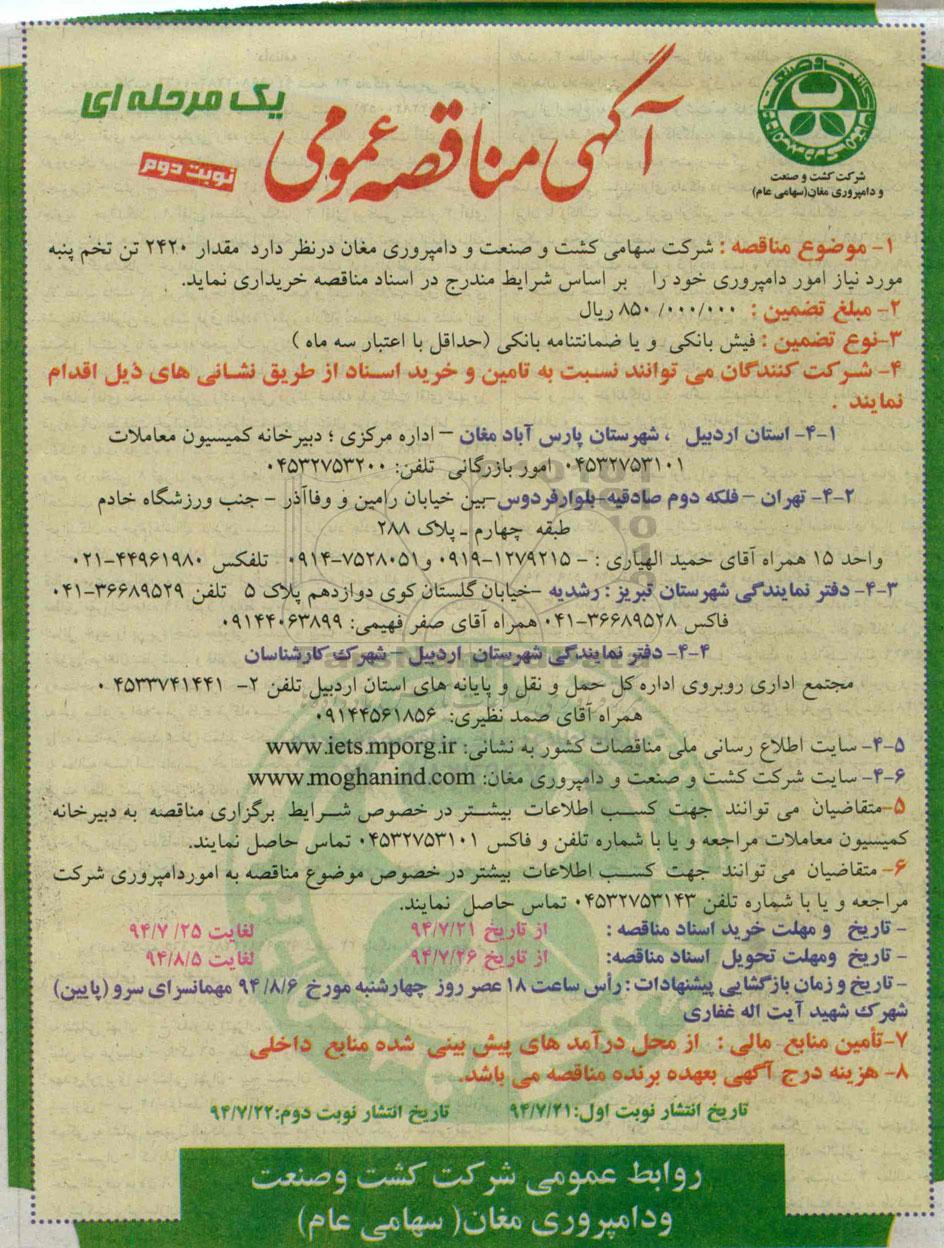 آگهی مناقصه عمومی
یک مرحله ای
نوبت دوم
شرکت کشت و صنعت
و دامپروری مغان(سهامی عام)
۱- موضوع مناقصه : شرکت سهامی کشت و صنعت و دامپروری مغان درنظر دارد مقدار ۲۴۲۰ تن تخم پنبه
مورد نیاز امور دامپروری خود را بر اساس شرایط مندرج در اسناد مناقصه خریداری نماید.
۲- مبلغ تضمین : ۸۵۰/۰۰۰/۰۰۰ ریال
۳-نوع تضمین : فیش بانکی و یا ضمانتنامه بانکی (حداقل با اعتبار سه ماه )
۴- شرکت کنندگان می توانند نسبت به تامین و خرید اسناد از طریق نشانی های ذیل اقدام
نمایند .
۴-۱- استان اردبیل ، شهرستان پارس آباد مغان – اداره مرکزی ؛ دبیرخانه کمیسیون معاملات
۰۴۵۳۲۷۵۳۱۰۱ امور بازرگانی تلفن: ۰۴۵۳۲۷۵۳۲۰۰
۴-۲- تهران – فلکه دوم صادقیه-بلوارفردوس-بین خیابان رامین و وفاآذر – جنب ورزشگاه خادم
طبقه چهارم ـ پلاک ۲۸۸
واحد ۱۵ همراه آقای حمید الهیاری : - ۱۲۷۹۲۱۵-۰۹۱۹ و۷۵۲۸۰۵۱-۰۹۱۴ تلفکس ۴۴۹۶۱۹۸۰-۰۲۱
۴-۳- دفتر نمایندگی شهرستان تبریز : رشدیه -خیابان گلستان کوی دوازدهم پلاک ۵ تلفن ۳۶۶۸۹۵۲۹-۰۴۱
فاکس ۳۶۶۸۹۵۲۸-۰۴۱ همراه آقای صفر فهیمی: ۰۹۱۴۴۰۶۳۸۹۹
۴-۴- دفتر نمایندگی شهرستان اردبیل – شهرک کارشناسان
مجتمع اداری روبروی اداره کل حمل و نقل و پایانه های استان اردبیل تلفن ۲- ۰۴۵۳۳۷۴۱۴۴۱
همراه آقای صمد نظیری: ۰۹۱۴۴۵۶۱۸۵۶
۴-۵- سایت اطلاع رسانی ملی مناقصات کشور به نشانی: www.iets.mporg.ir
۴-۶- سایت شرکت کشت و صنعت و دامپروری مغان: www.moghanind.com
۵-متقاضیان می توانند جهت کسب اطلاعات بیشتر در خصوص شرایط برگزاری مناقصه به دبیرخانه
کمیسیون معاملات مراجعه و یا با شماره تلفن و فاکس ۰۴۵۳۲۷۵۳۱۰۱ تماس حاصل نمایند.
۶- متقاضیان می توانند جهت کسب اطلاعات بیشتر در خصوص موضوع مناقصه به اموردامپروری شرکت
مراجعه و یا با شماره تلفن ۰۴۵۳۲۷۵۳۱۴۳ تماس حاصل نمایند.
- تاریخ و مهلت خرید اسناد مناقصه : از تاریخ ۹۴/۷/۲۱ لغایت ۹۴/۷/۲۵
- تاریخ ومهلت تحویل اسناد مناقصه: از تاریخ ۹۴/۷/۲۶ لغایت ۹۴/۸/۵
- تاریخ و زمان بازگشایی پیشنهادات : رأس ساعت ۱۸ عصر روز چهارشنبه مورخ ۹۴/۸/۶ مهمانسرای سرو (پایین)
شهرک شهید آیت اله غفاری
۷-تأمین منابع مالی : از محل درآمد های پیش بینی شده منابع داخلی
۸- هزینه درج آگهی بعهده برنده مناقصه می باشد.
تاریخ انتشار نوبت اول:۹۴/۷/۲۱ تاریخ انتشار نوبت دوم:۹۴/۷/۲۲
روابط عمومی شرکت کشت وصنعت
ودامپروری مغان( سهامی عام)